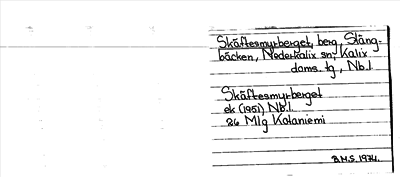 Skäftesmyrberget, berg, Stång-
bäcken, Nederkalix sn, Kalix
doms. tg, Nb.l
Skäftesmyrberget
ek (1951) Nb.l.
26 Mlg Kolaniemi
B.H.S. 1974.